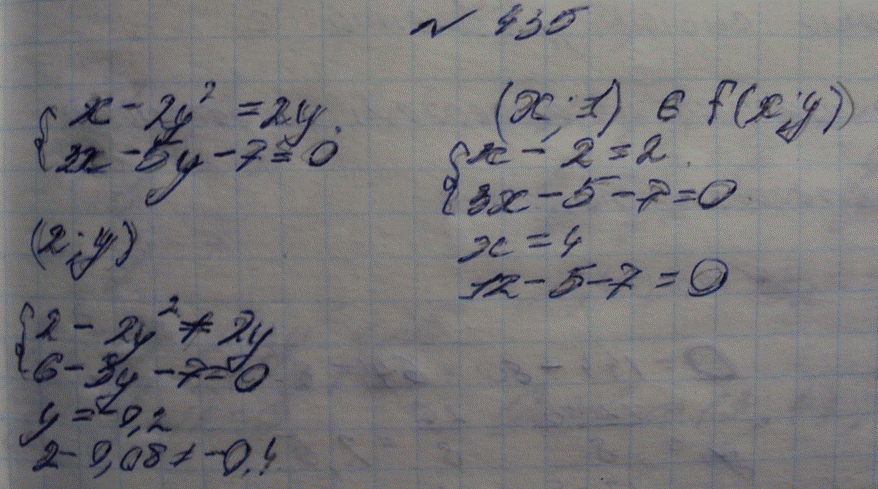 № 435
x - 2y² = 2y
3x - 5y - 7 = 0
(2; y)
2 - 2y² ≠ 2y
6 - 5y - 7 = 0
y = -0,2
2 - 0,08 ≠ -0,4
(x; 1) ∈ f(x; y)
x - 2 = 2
3x - 5 - 7 = 0
x = 4
12 - 5 - 7 = 0